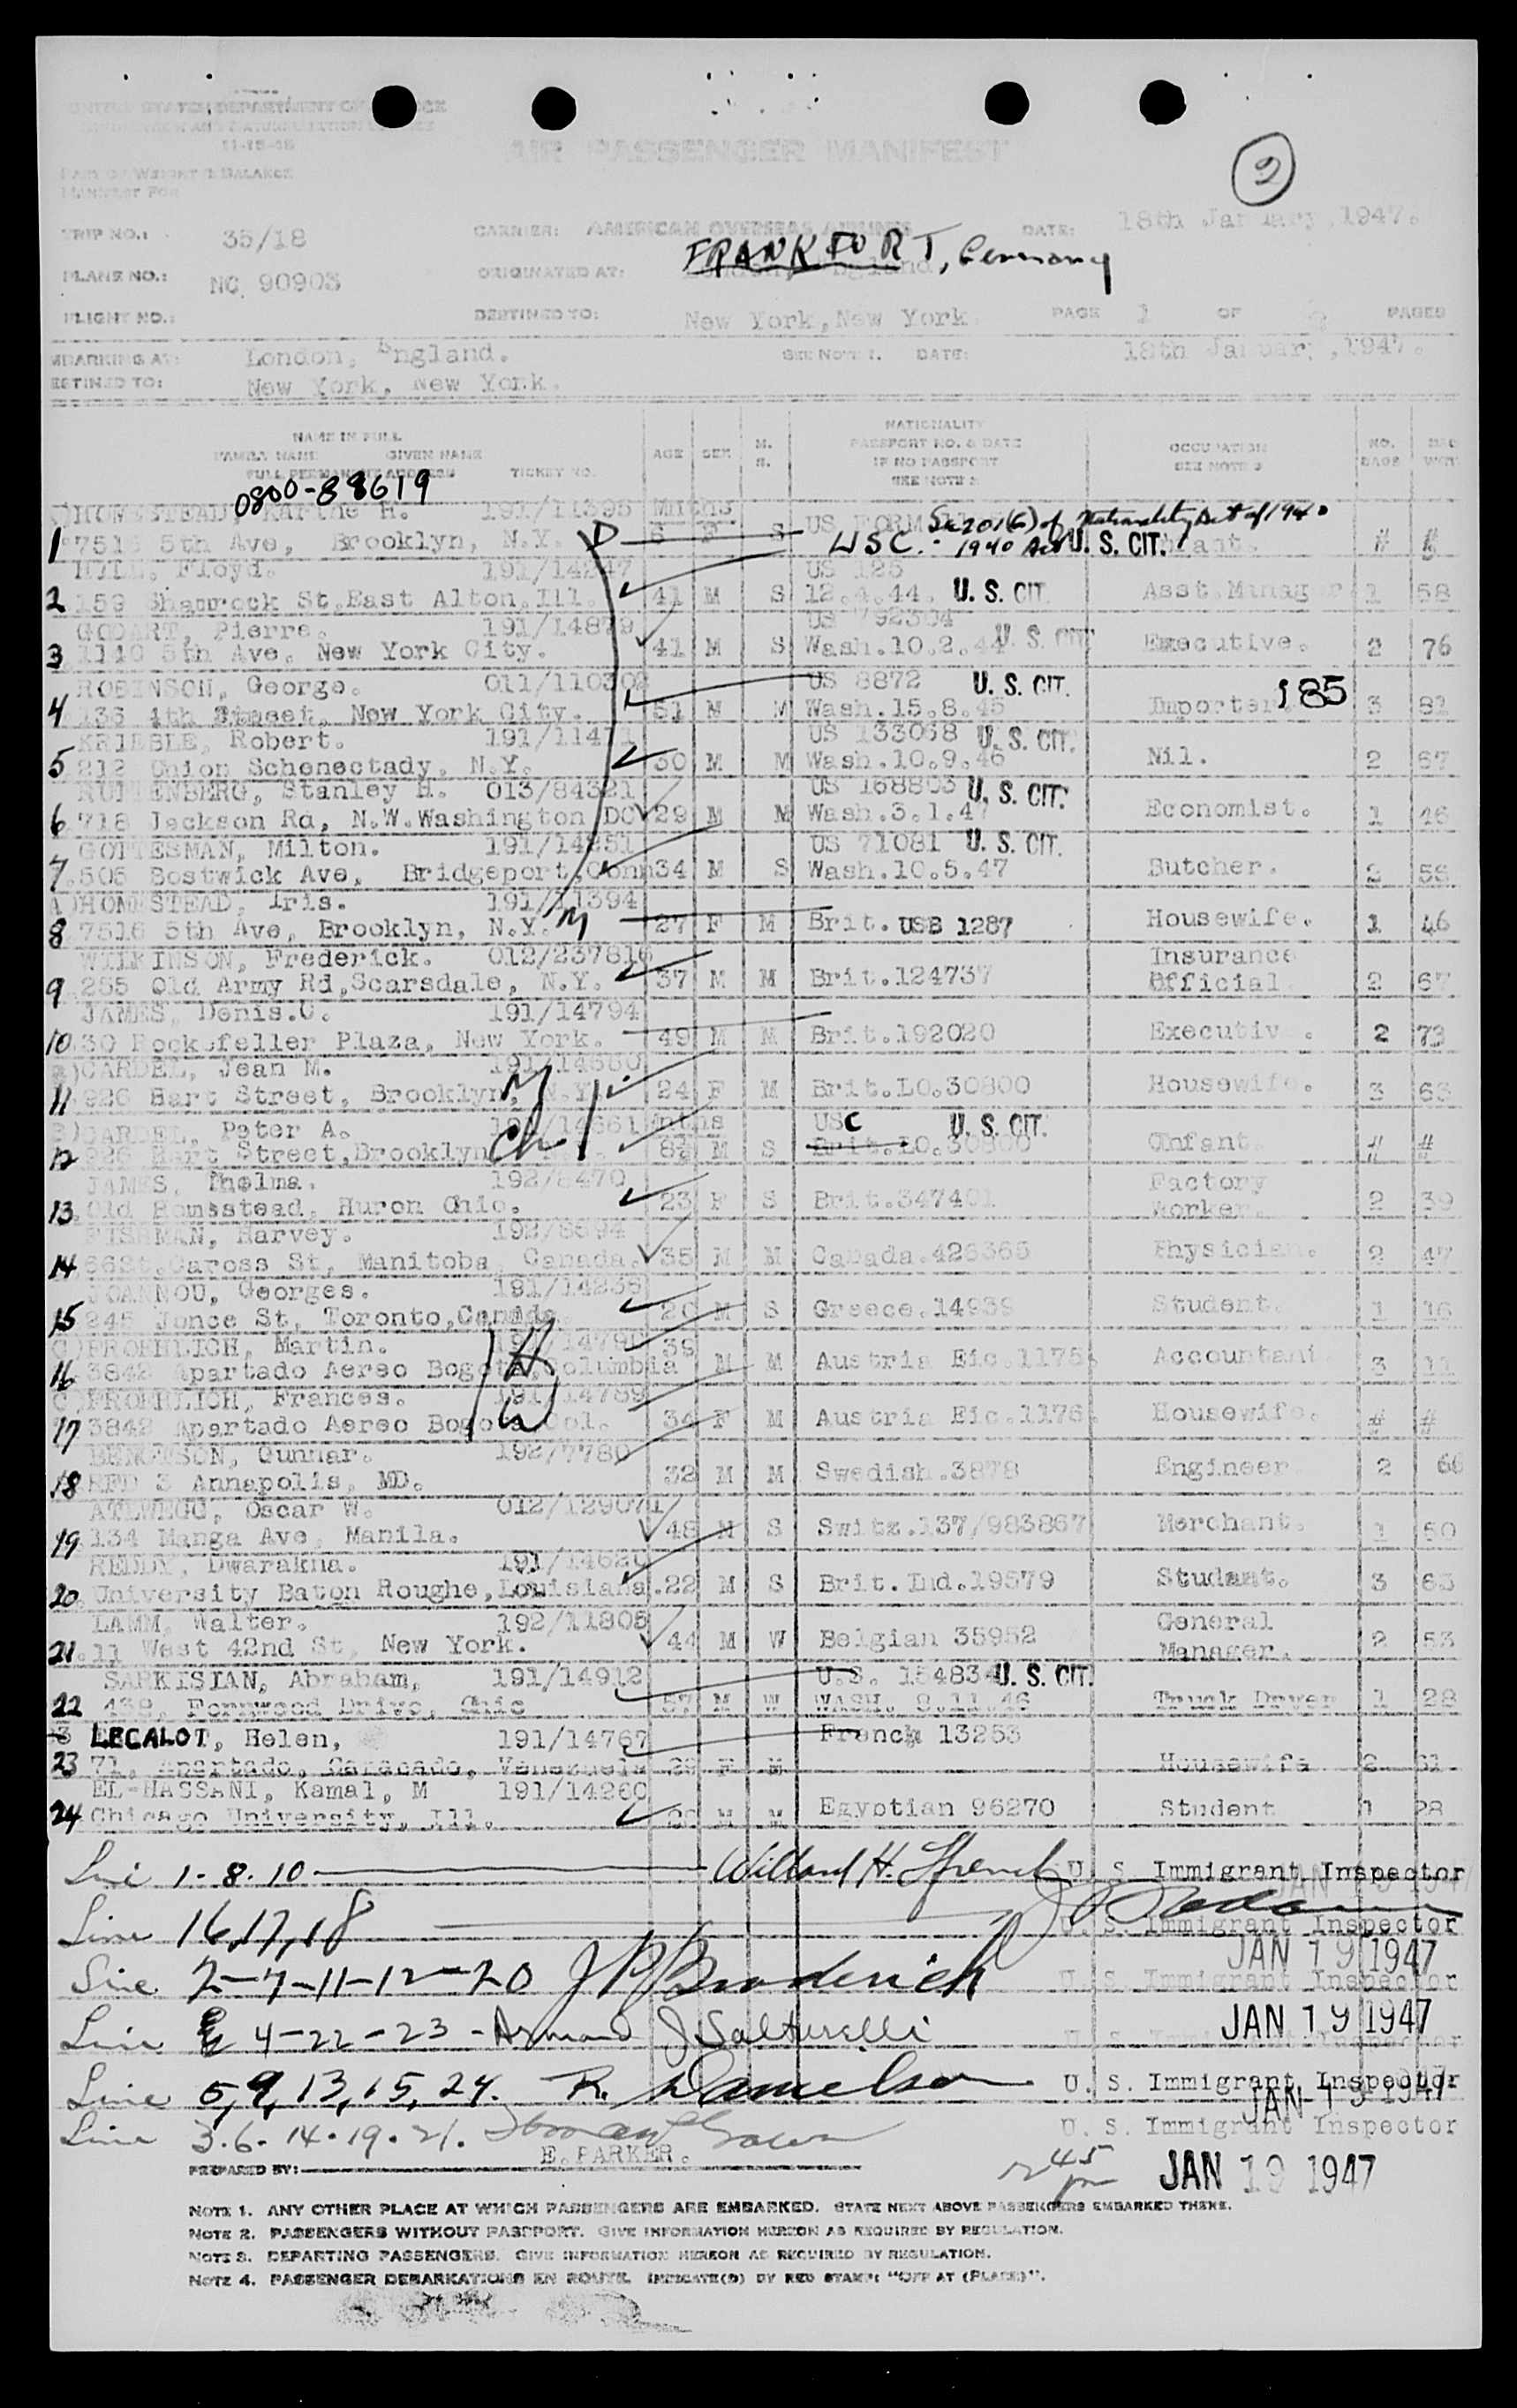 UNITED STATES DEPARTMENT OF JUSTICE
IMMIGRATION AND NATURALIZATION SERVICE
11-15-45
AIR PASSENGER MANIFEST
PART OF WEIGHT & BALANCE
MANIFEST FOR
2
TRIP NO.: 35/18 CARRIER: AMERICAN OVERSEAS AIRLINES DATE: 18th January, 1947.
PLANE NO.: NC 90903 ORIGINATED AT: London, England FRANKFORT, Germany
FLIGHT NO.: DESTINED TO: New York, New York. PAGE 1 OF PAGES
EMBARKING AT: London, England. SEE NOTE 1. DATE: 18th January, 1947.
DESTINED TO: New York, New York.
NAME IN FULL
FAMILY NAME GIVEN NAME
FULL PERMANENT ADDRESS TICKET NO.
AGE SEX M. S.
NATIONALITY
PASSPORT NO. & DATE
IF NO PASSPORT
SEE NOTE 2
OCCUPATION
SEE NOTE 3
NO. BAGS
0800-88619
HOMESTEAD, H. 191/11395 Mnths US FORM Sec 201(G) of Nationality Act of 1940
1 7516 5th Ave, Brooklyn, N.Y. D 6 F S USC. 1940 Act U. S. CIT. Infant. # #
Floyd. 191/14247 US 125
2 159 Shamrock St. East Alton, Ill. 41 M S 12.4.44. U. S. CIT. Asst. Manager 1 58
GODART, Pierre. 191/14879 US 792304
3 1140 5th Ave, New York City. 41 M S Wash.10.2.44 U. S. CIT. Executive. 2 76
ROBINSON, George. 011/110302 US 8872 U. S. CIT.
4 136 4th Street, New York City. 51 M M Wash.15.8.45 Importer. 185 3 81
Robert. 191/11411 US 133068 U. S. CIT.
5 212 Union Schenectady, N.Y. 30 M M Wash.10.9.46 Nil. 2 67
RUTTENBERG, Stanley H. 013/84321 US 168803 U. S. CIT.
6 718 Jackson Rd, N.W.Washington DC 29 M M Wash.3.1.47 Economist. 1 46
GOTTESMAN, Milton. 191/14851 US 71081 U. S. CIT.
7 505 Bostwick Ave, Bridgeport, Conn 34 M S Wash.10.5.47 Butcher. 2 58
A)HOMESTEAD, Iris. 191/11394
8 7516 5th Ave, Brooklyn, N.Y. M 27 F M Brit. USB 1287 Housewife. 1 46
WILKINSON, Frederick. 012/237816 Insurance
9 255 Old Army Rd, Scarsdale, N.Y. 37 M M Brit.124737 Official 2 67
JAMES, Denis.O. 191/14794
10 30 Rockefeller Plaza, New York. 49 M M Brit.192020 Executive. 2 73
B)CARDEL, Jean M. 191/14660
11 926 Hart Street, Brooklyn, N.Y. M 24 F M Brit.LO.30800 Housewife. 3 63
B)CARDEL, Peter A. 191/14661 Mnths USC U. S. CIT.
12 926 Hart Street, Brooklyn Ch 8½ M S Brit.LO.30800 Infant # #
JAMES, Thelma. 192/8470 Factory
13 Old Homestead, Huron Ohio. 23 F S Brit.347401 Worker. 2 39
FISHMAN, Harvey. 192/8694
14 Caross St, Manitoba Canada. 35 M M Canada.426365 Physician. 2 47
JOANNOU, Georges. 191/14236
15 245 Jonce St, Toronto, Canada 20 M S Greece.14939 Student. 1 16
C)FROEHLICH, Martin. 191/14790 39
16 3842 Apartado Aereo Bogota, Columbia H M M Austria Eic.1175. Accountant 3 11
C)FROEHLICH, Frances. 191/14789
17 3842 Apartado Aereo Bogota, Col. W 34 F M Austria Eic.1176. Housewife. # #
BENGTSON, Gunnar. 192/7780
18 RFD 3 Annapolis, MD. 32 M M Swedish.3878 Engineer 2 66
ATLWEGG, Oscar W. 012/129071
19 134 Manga Ave, Manila. 48 M S Switz.137/983867 Merchant. 1 50
REDDY, Dwarakna. 191/14620
20 University Baton Roughe, Louisiana. 22 M S Brit.Ind.19579 Student. 3 63
LAMM, Walter. 192/11805 General
21. 11 West 42nd St, New York. 44 M W Belgian 35952 Manager. 2 53
SARKISIAN, Abraham, 191/14912 U.S. 154834 U. S. CIT.
22 438, Fernwood Drive, Ohio 57 M W WASH. 8.11.46 Truck Driver 1 28
LECALOT, Helen, 191/14767 French 13253
23 71, Apartado, Caracado, Venezuela F M Housewife 2 61
EL-HASSANI, Kamal, M 191/14260
24 Chicago University, Ill. M M Egyptian 96270 Student 1 28
Line 1-8-10 Willard H. French U. S. Immigrant Inspector
Line 16,17,18 U. S. Immigrant Inspector
JAN 19 1947
Line 2-7-11-12-20 J P Broderick U. S. Immigrant Inspector
JAN 19 1947
Line 4-22-23 - Armand J Salturelli
Line 5,9,13,15,24. R. Danielson U. S. Immigrant Inspector
JAN 19 1947
Line 3.6.14.19.21. U. S. Immigrant Inspector
PREPARED BY: E. PARKER. 245 pm JAN 19 1947
NOTE 1. ANY OTHER PLACE AT WHICH PASSENGERS ARE EMBARKED. STATE NEXT ABOVE PASSENGERS EMBARKED THERE.
NOTE 2. PASSENGERS WITHOUT PASSPORT. GIVE INFORMATION HEREON AS REQUIRED BY REGULATION.
NOTE 3. DEPARTING PASSENGERS. GIVE INFORMATION HEREON AS REQUIRED BY REGULATION.
NOTE 4. PASSENGER DEBARKATIONS EN ROUTE. INDICATE(D) BY RED STAMP: "OFF AT (PLACE)".